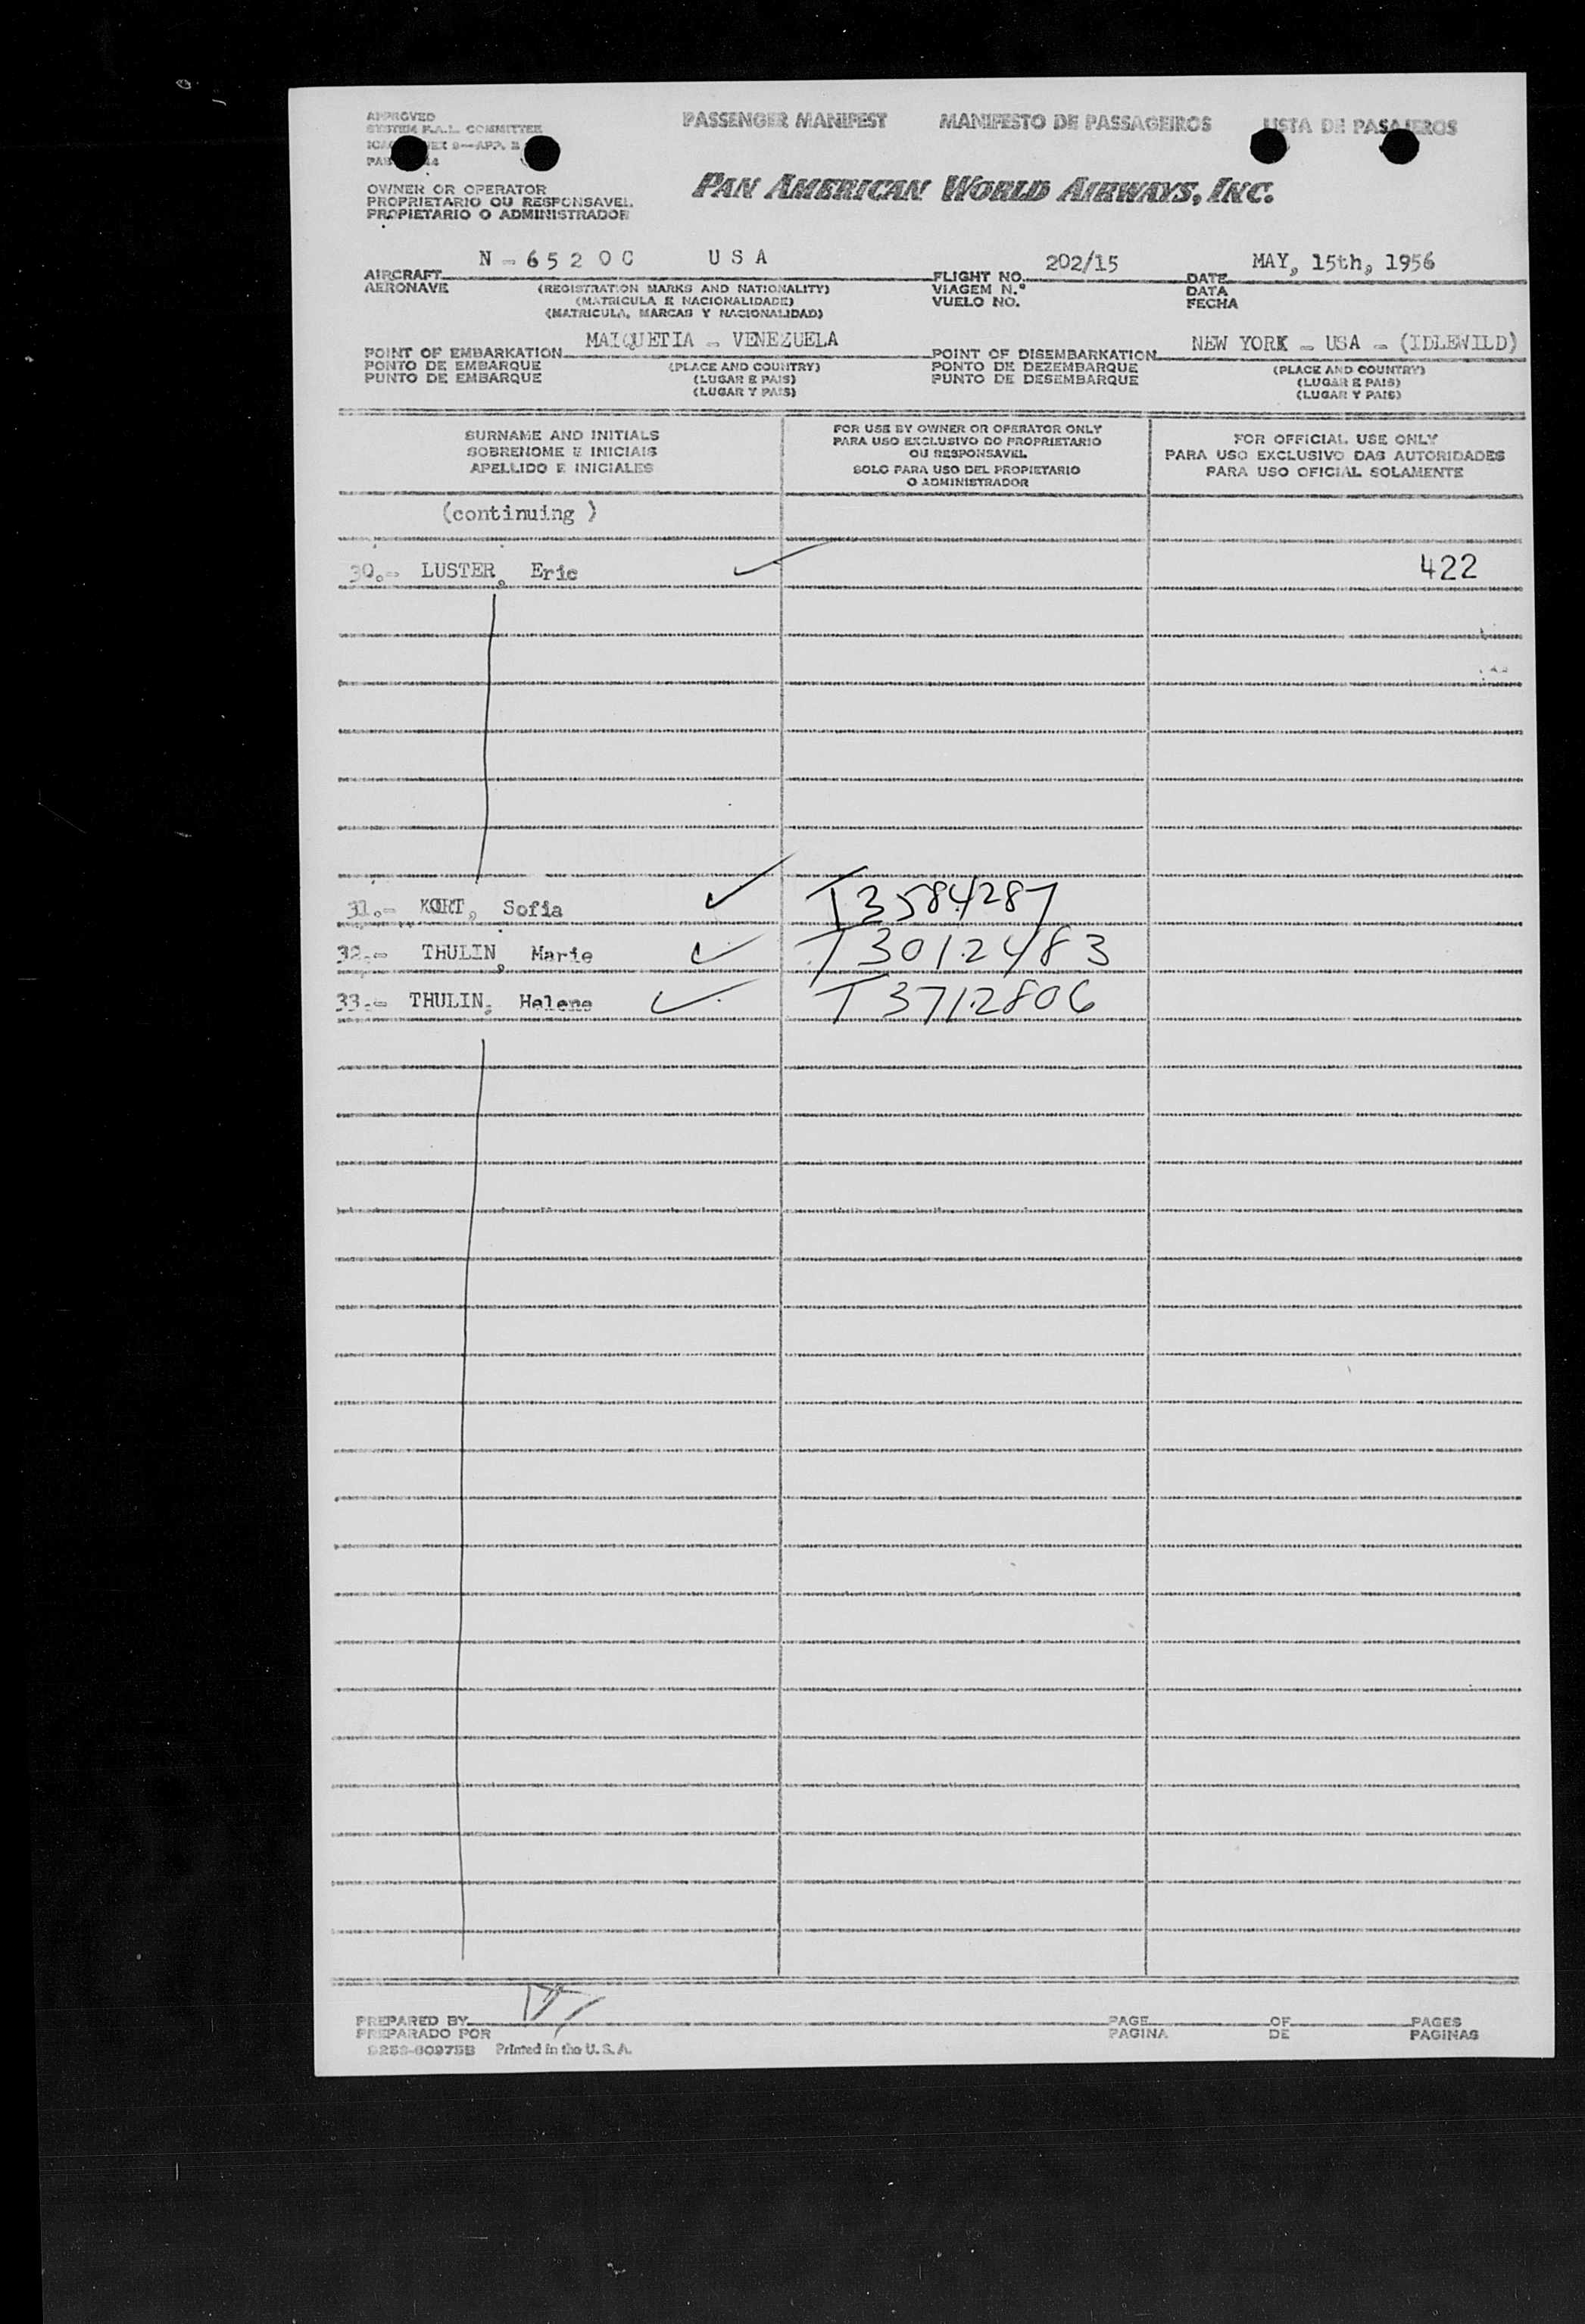 APPROVED
SYSTEM F.A.L. COMMITTEE
PASSENGER MANIFEST MANIFESTO DE PASSAGEIROS LISTA DE PASAJEROS
OWNER OR OPERATOR
PROPRIETARIO OU RESPONSAVEL
PROPIETARIO O ADMINISTRADOR
PAN AMERICAN WORLD AIRWAYS, INC.
N - 6 5 2 0 C U S A
202/15
MAY, 15th, 1956
AIRCRAFT
AERONAVE
(REGISTRATION MARKS AND NATIONALITY)
(MATRICULA E NACIONALIDADE)
(MATRICULA, MARCAS Y NACIONALIDAD)
FLIGHT NO.
VIAGEM N.º
VUELO NO.
DATE
DATA
FECHA
MAIQUETIA - VENEZUELA
NEW YORK - USA - (IDLEWILD)
POINT OF EMBARKATION
PONTO DE EMBARQUE
PUNTO DE EMBARQUE
(PLACE AND COUNTRY)
(LUGAR E PAIS)
(LUGAR Y PAIS)
POINT OF DISEMBARKATION
PONTO DE DEZEMBARQUE
PUNTO DE DESEMBARQUE
(PLACE AND COUNTRY)
(LUGAR E PAIS)
(LUGAR Y PAIS)
SURNAME AND INITIALS
SOBRENOME E INICIAIS
APELLIDO E INICIALES
FOR USE BY OWNER OR OPERATOR ONLY
PARA USO EXCLUSIVO DO PROPRIETARIO
OU RESPONSAVEL
SOLO PARA USO DEL PROPIETARIO
O ADMINISTRADOR
FOR OFFICIAL USE ONLY
PARA USO EXCLUSIVO DAS AUTORIDADES
PARA USO OFICIAL SOLAMENTE
(continuing )
30.- LUSTER, Eric 422
31.- KORT, Sofia T3584287
32.- THULIN, Marie T3012483
33.- THULIN, Helene T3712806
PREPARED BY
PREPARADO POR
PAGE OF PAGES
PAGINA DE PAGINAS
Printed in the U. S. A.